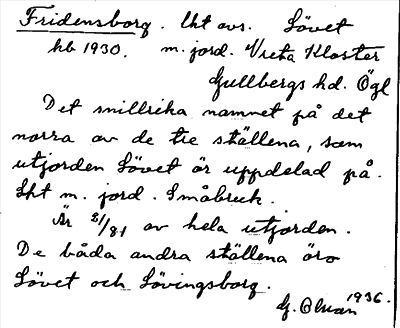 Fridensborg. lht avs. Lövet
hb 1930. m. jord. Vreta Kloster
Gullbergs hd. Ögl
Det snillrika namnet på det
norra av de tre ställena, som
utjorden Lövet är uppdelad på.
Lht m. jord. Småbruk.
Är 21/81 av hela utjorden.
De båda andra ställena äro
Lövet och Lövingsborg.
1936.